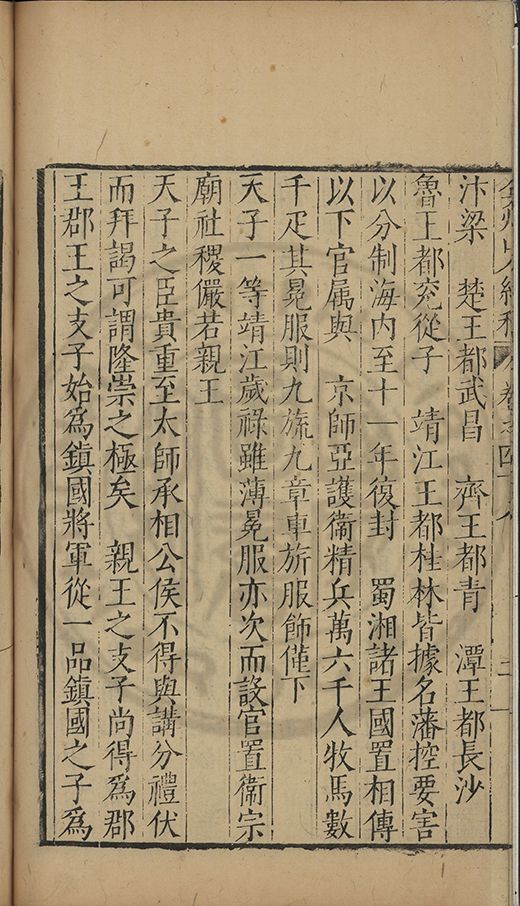 弇州山人續稿 卷之四十八 二
汴梁 楚王都武昌 齊王都青 潭王都長沙
魯王都兖從子 靖江王都桂林皆據名藩控要害
以分制海内至十一年復封 蜀湘諸王國置相傅
以下官属與 京師亞護衛精兵萬六千人牧馬數
千疋其冕服則九旒九章車旂服飾僅下
天子一等靖江歲祿雖薄冕服亦次而設官置衞宗
廟社稷儼若親王
天子之臣貴重至太師丞相公侯不得與講分禮伏
而拜謁可謂隆崇之極矣 親王之支子尚得爲郡
王郡王之支子始爲鎮國將軍從一品鎮國之子爲